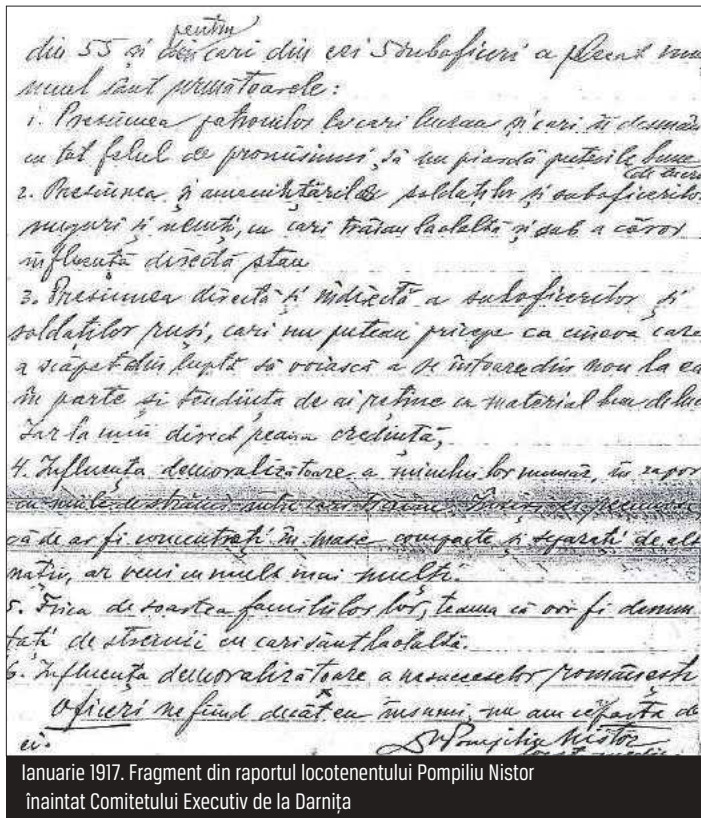 pentru
din 55 și din cari din cei 5 subofițeri a plecat nu
unul sânt următoarele:
1. Presiunea patronilor la cari lucrau și cari îi
cu tot felul de promisiuni, să nu piardă puterile bune
de lucru
2. Presiunea și amenințările soldaților și subofițerilor
unguri și nemți, cu cari trăiau laolaltă și sub a căror
influență directă stau
3. Presiunea directă și indirectă a subofițerilor și
soldaților ruși, cari nu puteau pricepe ca cineva care
a scăpat din luptă să voiască a se întoarce din nou la ea
în parte și tendința de ai reține ca material bun de luc
Iar la unii direct reaua credință,
4. Influența demoralizătoare a numărului lor în rapor
cu între cari trăiau.
că de ar fi concentrați în mase compacte și separați de alt
ar veni cu mult mai mulți.
5. Frica de soartea familiilor lor, teama că or fi denun
țați de streinii cu cari sânt laolaltă.
6. Influența demoralizătoare a nesucceselor românești
Ofițeri ne fiind decât eu însumi, nu am de
ei.
Pompiliu Nistor
Ianuarie 1917. Fragment din raportul locotenentului Pompiliu Nistor
înaintat Comitetului Executiv de la Darnița